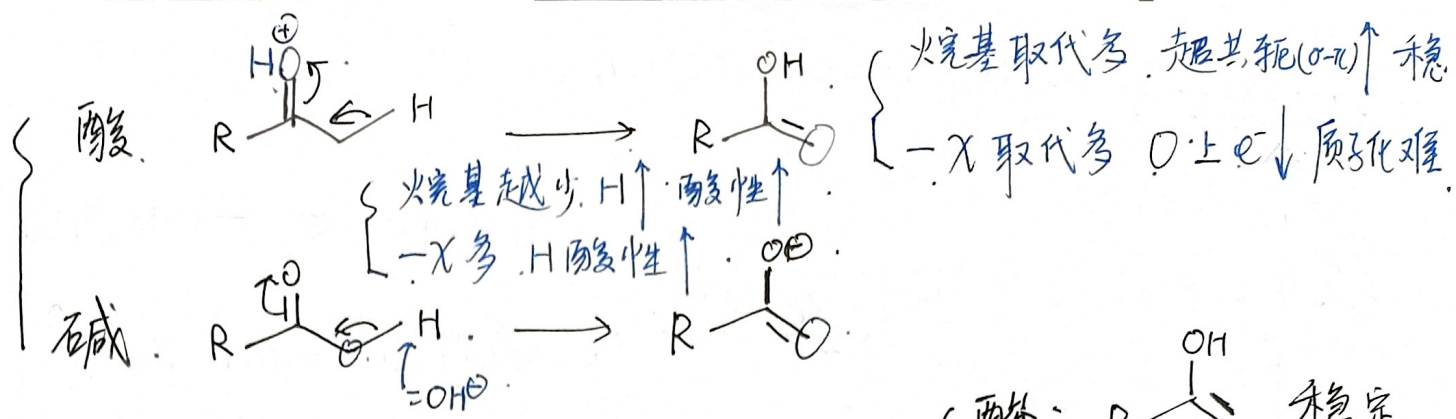 酸. H O⊕ R H → OH R
烷基取代多.超共轭(σ-π)↑ 稳.
-X取代多 O上e⁻↓ 质子化难.
烷基越少.H↑.酸性↑.
-X多.H酸性↑.
碱. O R H. → O⊖. R
=OH⊖.
OH
酸: R 稳定